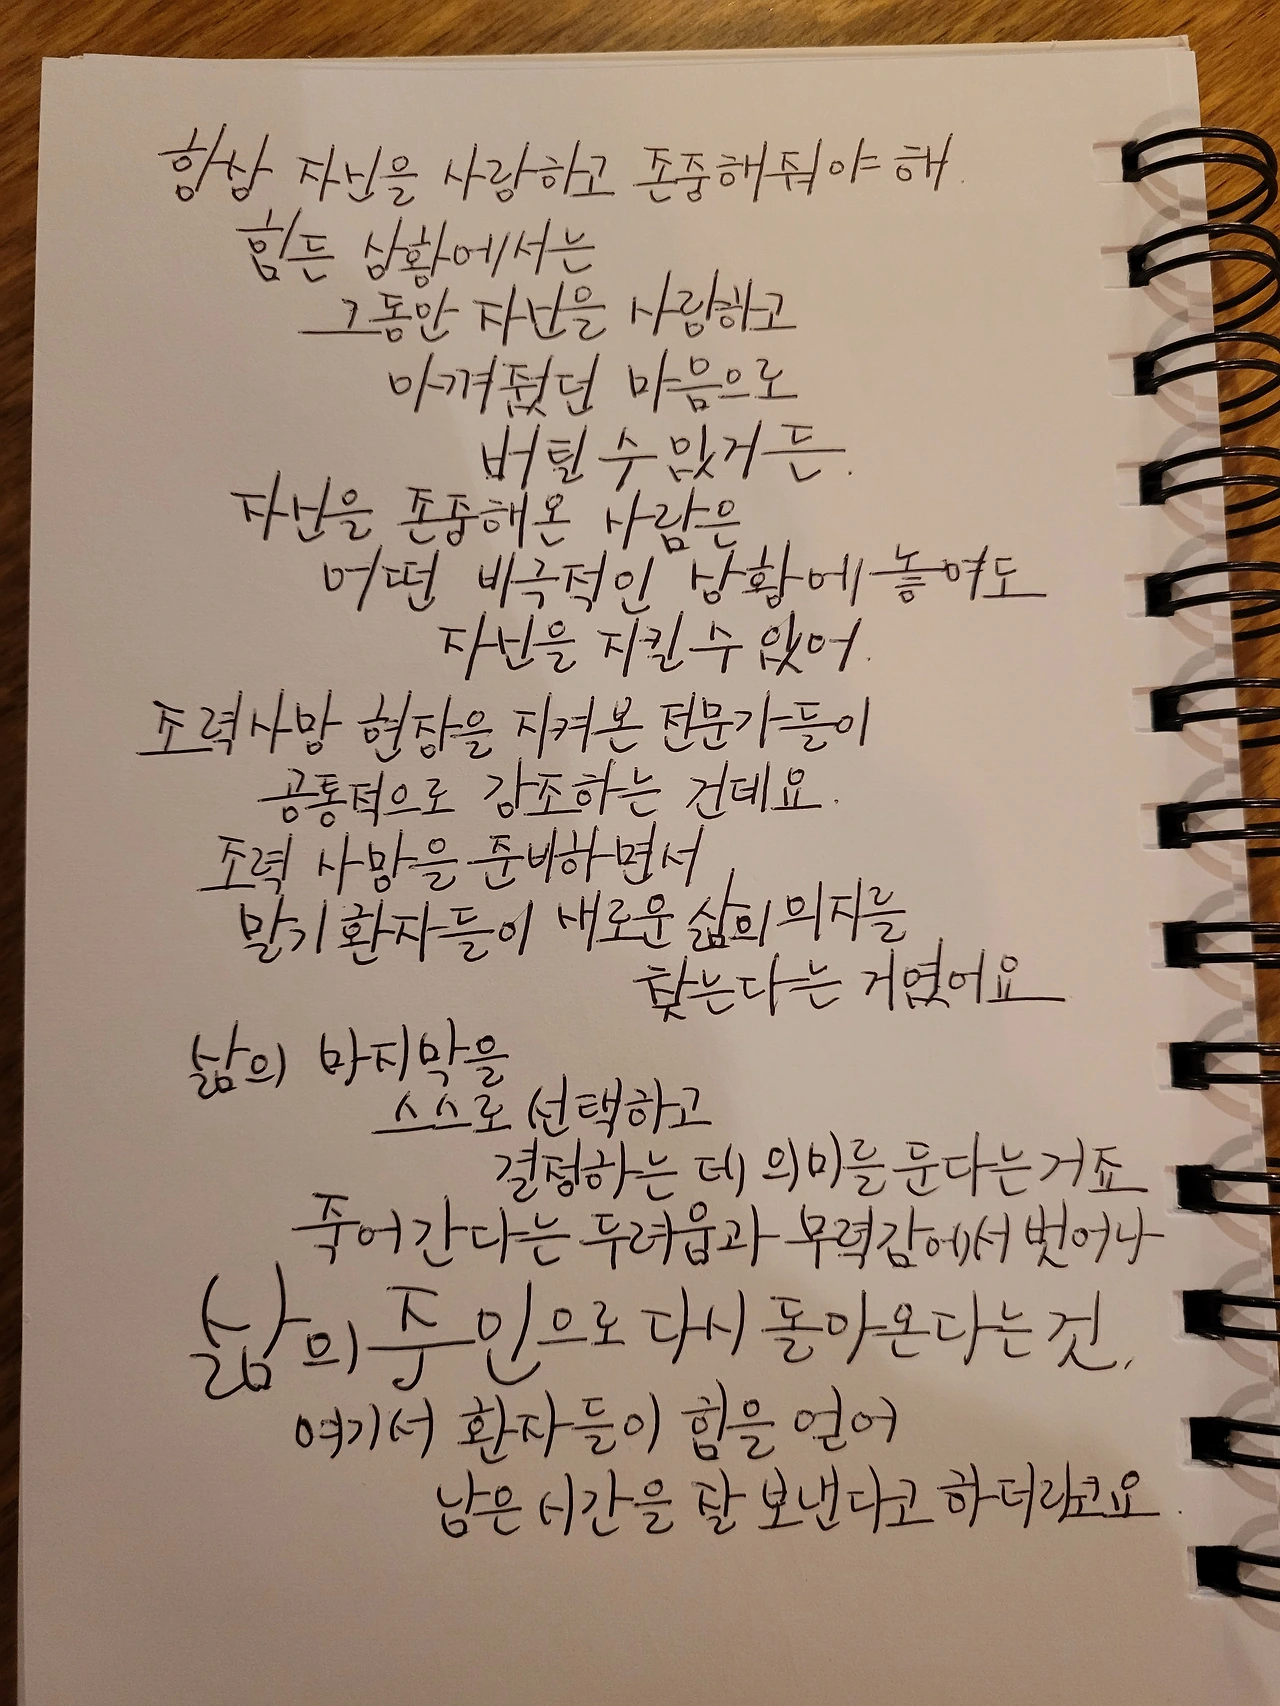 항상 자신을 사랑하고 존중해줘야 해.
힘든 상황에서는
그동안 자신을 사랑하고
아껴줬던 마음으로
버틸 수 있거든.
자신을 존중해온 사람은
어떤 비극적인 상황에 놓여도
자신을 지킬 수 있어.
조력사망 현장을 지켜본 전문가들이
공통적으로 강조하는 건데요.
조력 사망을 준비하면서
말기 환자들이 새로운 삶의 의지를
찾는다는 거였어요
삶의 마지막을
스스로 선택하고
결정하는 데 의미를 둔다는거죠
죽어간다는 두려움과 무력감에서 벗어나
삶의 주인으로 다시 돌아온다는 것,
여기서 환자들이 힘을 얻어
남은 시간을 잘 보낸다고 하더라고요.